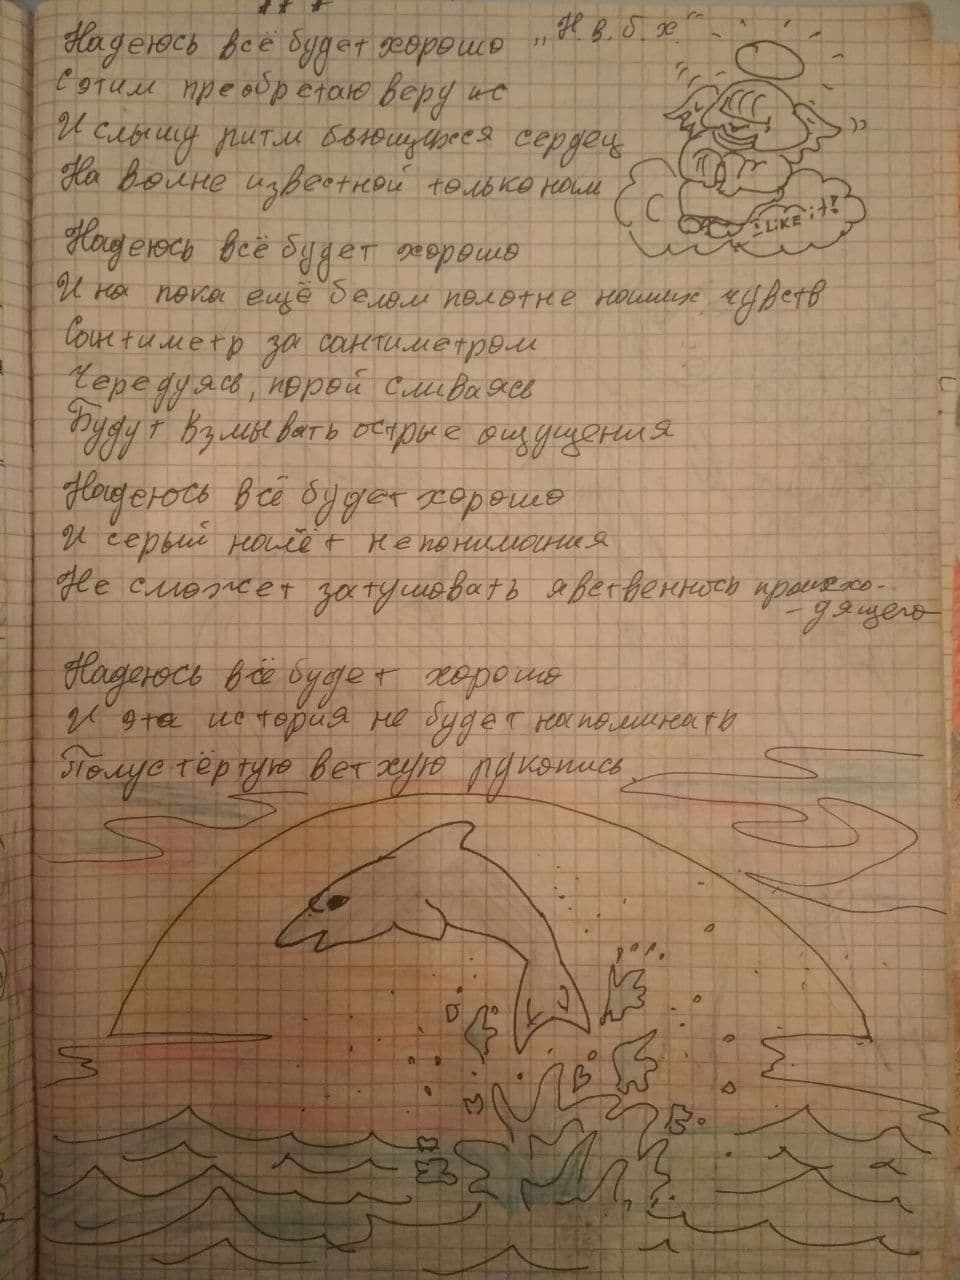 Надеюсь всё будет хорошо „Н.в.б.х"
С этим преобретаю веру и с
И слышу ритм бьющихся сердец
На волне известной только нам
I LIKE it!
Надеюсь всё будет хорошо
И на пока ещё белом полотне наших чувств
Сантиметр за сантиметром
Чередуясь, порой сливаясь
Будут взмывать острые ощущения
Надеюсь всё будет хорошо
И серый налёт непонимания
Не сможет затушовать явственнось происхо-
-дящего
Надеюсь всё будет хорошо
И эта история не будет напоминать
Полустёртую ветхую рукопись